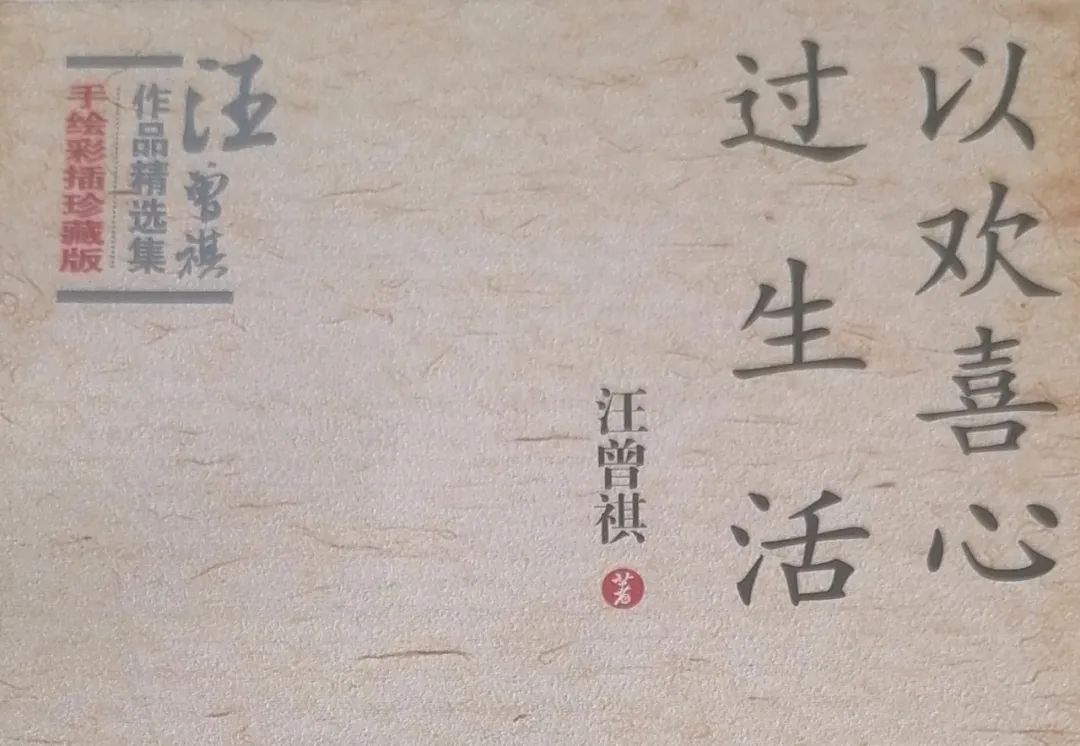 以欢喜心
过生活
汪曾祺
著
汪曾祺
作品精选集
手绘彩插珍藏版